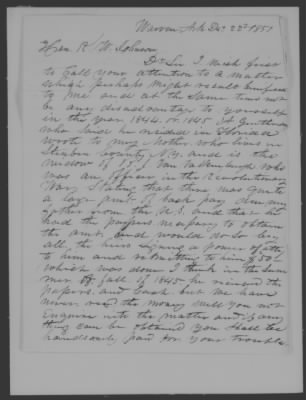 Warren Ark Dec 22d 1851
Hon R W Johnson
Dr Sir I wish first
to Call your attention to a matter
which perhaps might result benefical
to me and at the same time not
be any disadvantage to yourself
in the year 1844 or 1845 A Gentleman
who said he resided in Florida
wrote to my Mother who lives in
Steuben County N.Y. and is the
widow of Van Valkenburgh who
was an officer in the Revolutionary
War Stating that there was quite
a large amt of back pay due my
Father from the U.S. and that he
had the papers necessary to obtain
the amt and would do so by
all the heirs signing a power of atty
to him and remitting to him $50
which was done I think in the Sum
mer or fall of 1845 he received the
papers and Cash but we have
never recd the money will you not
Enquire into the matter and if any
thing can be obtained you shall be
handsomely paid for your trouble